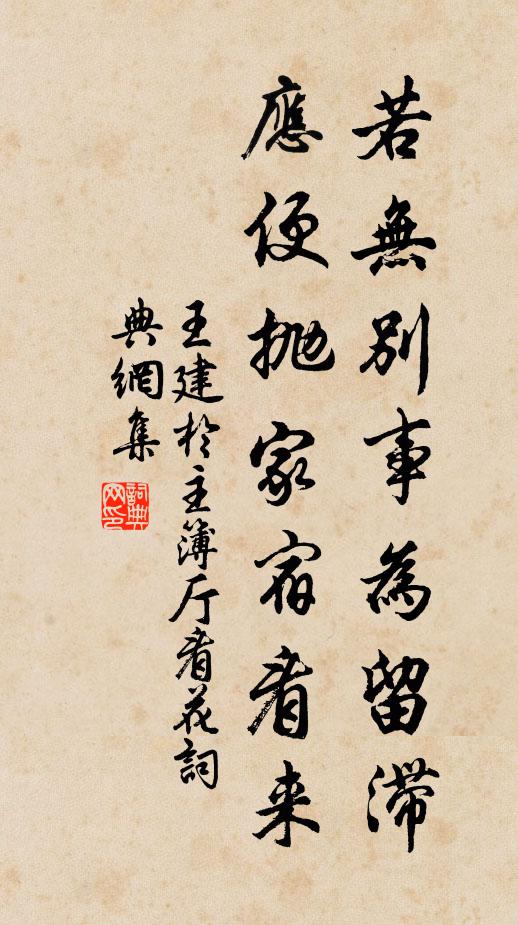 若無別事為留滯
應便拋家宿看来
王建於主簿厅看花詞
典網集
詞典網印